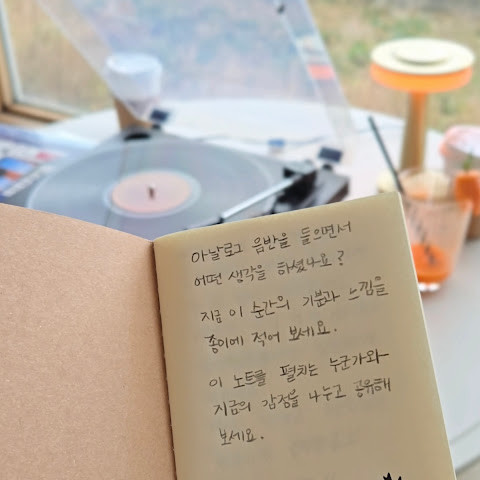 아날로그 음반을 들으면서
어떤 생각을 하셨나요?
지금 이 순간의 기분과 느낌을
종이에 적어 보세요.
이 노트를 펼치는 누군가와
지금의 감정을 나누고 공유해
보세요.